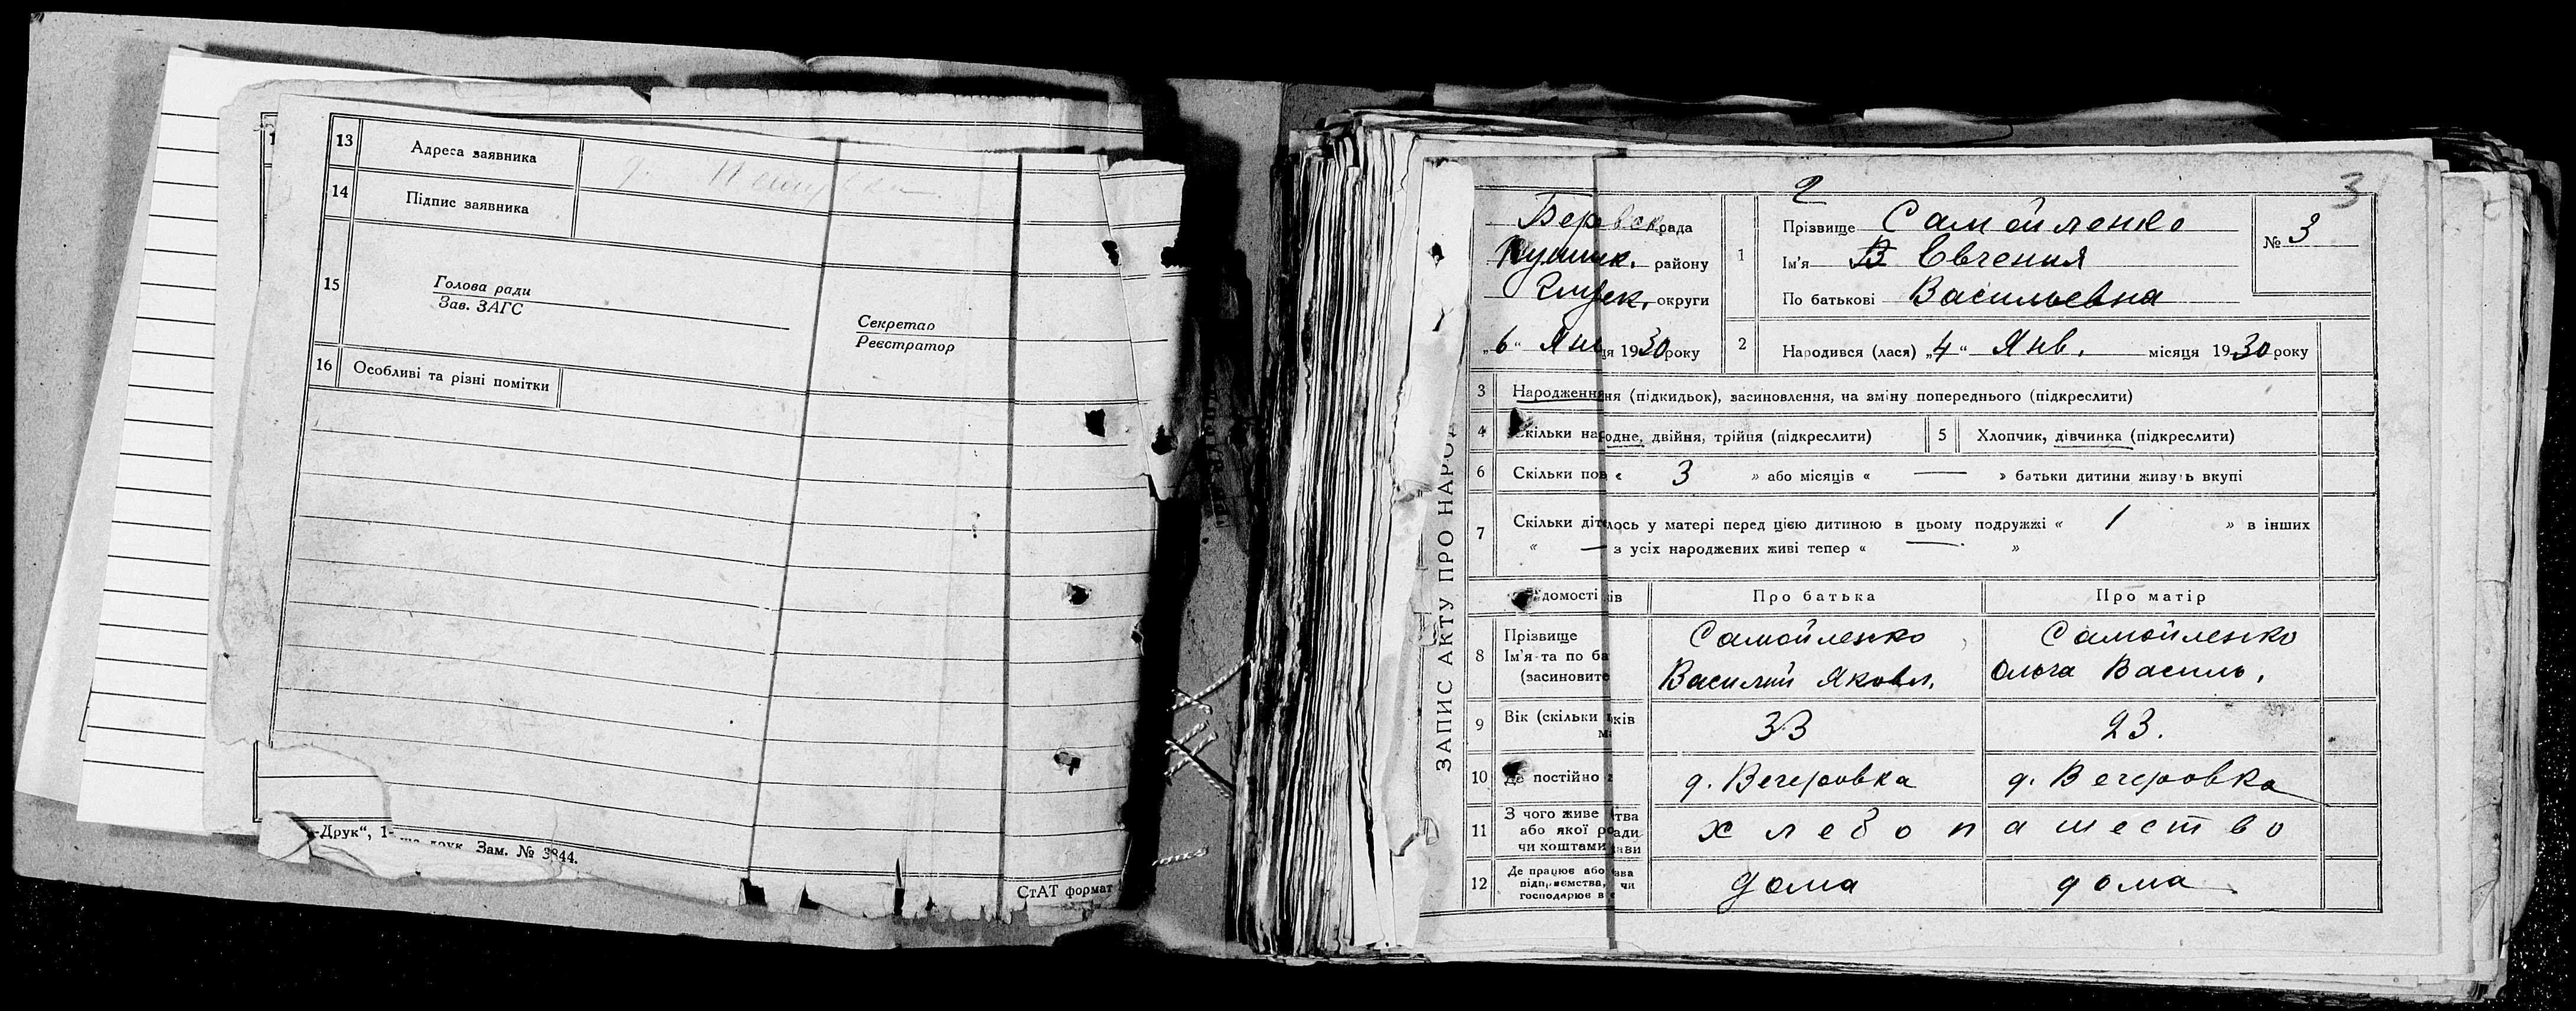 13 Адреса заявника
14 Підпис заявника
15 Голова ради
Зав. ЗАГС
Секретар
Реєстратор
16 Особливі та різні помітки
-Друк“, 1- друк. Зам. № 3844.
СтАТ формат
3
ЗАПИС АКТУ ПРО НАРОД
рада
району
округи
„6“ Янв ця 1930 року
1 Прізвище Самойленко
Ім'я Евгения
По батькові Васильевна
№ 3
2 Народився (лася) „4“ Янв. місяця 1930 року
3 Народження (підкидьок), засиновлення, на зміну попереднього (підкреслити)
4 Скільки народне, двійня, трійня (підкреслити)
5 Хлопчик, дівчинка (підкреслити)
6 Скільки пов « 3 » або місяців « — » батьки дитини живуть вкупі
7 Скільки діт лось у матері перед цією дитиною в цьому подружжі « 1 » в інших
« — з усіх народжених живі тепер « — »
ідомості ів
Про батька
Про матір
8 Прізвище
Ім'я та по ба
(засновите
Самойленко
Василий Яковл.
Самойленко
Ольга Василь.
9 Вік (скільки ків
33
23.
10 Де постійно
д. Вечеровка
д. Вечеровка
11 З чого живе тва
або якої ро ади
чи коштами ави
хлебопашество
12 Де працює або зва
підприємства, чи
господарює в
дома
дома